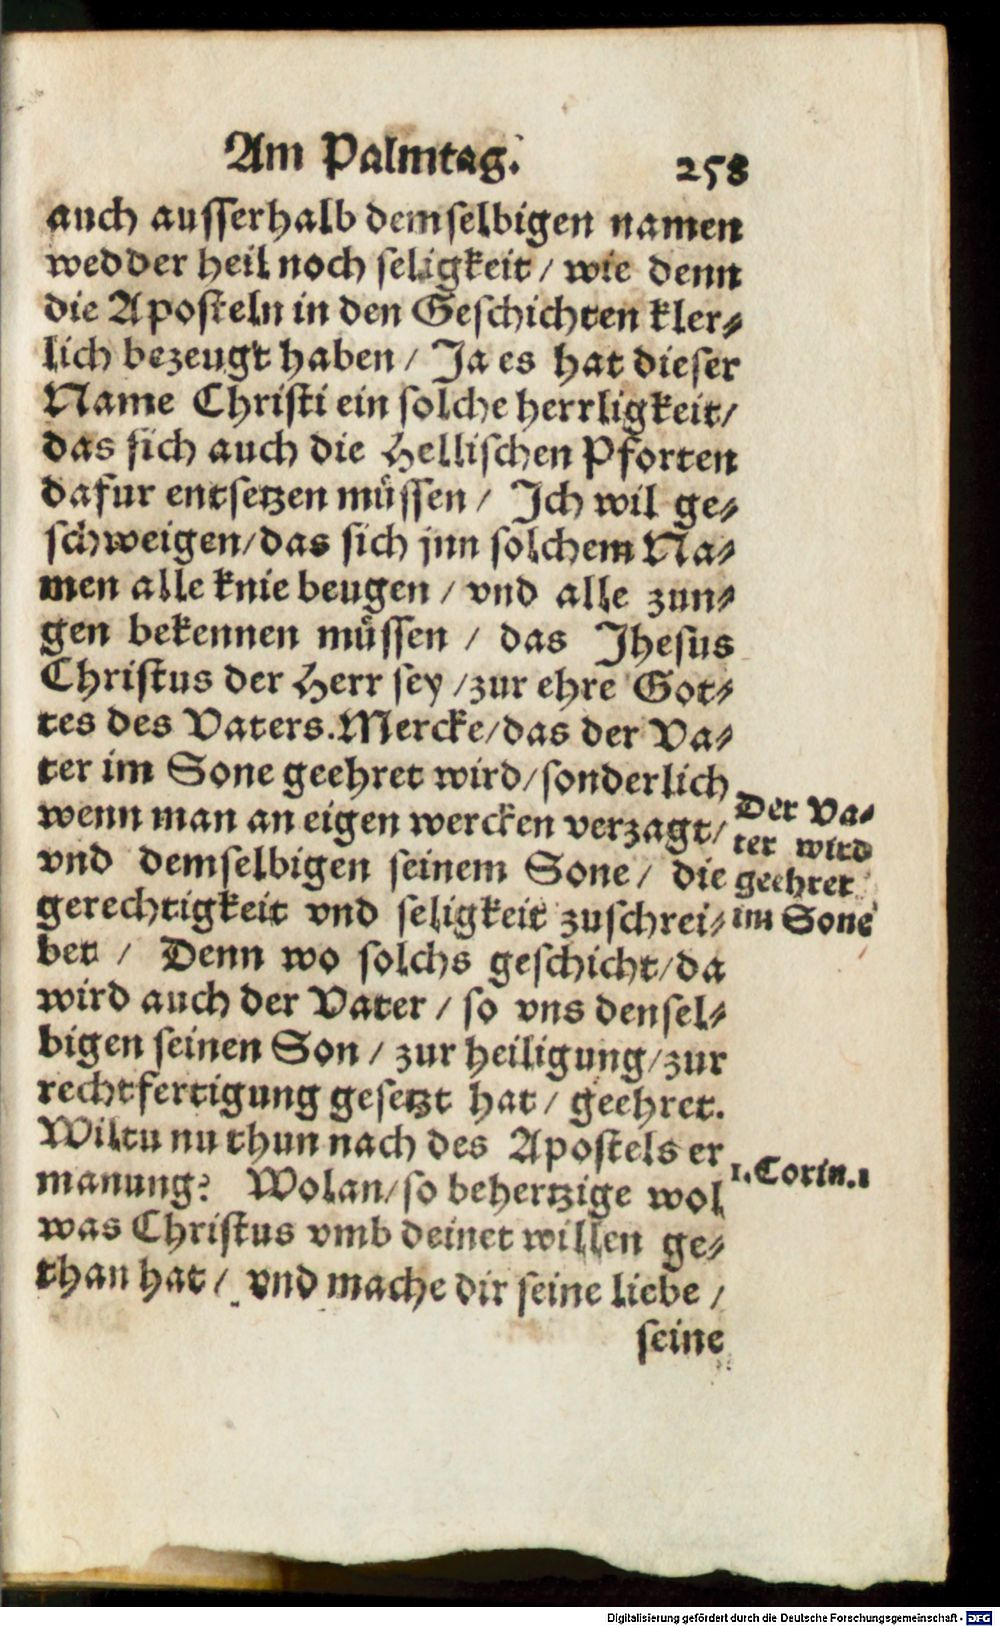 Am Palmtag. 258
auch ausserhalb demselbigen namen
wedder heil noch seligkeit / wie denn
die Aposteln in den Geschichten kler⸗
lich bezeugt haben / Ja es hat dieser
Name Christi ein solche herrligkeit/
das sich auch die Hellischen Pforten
dafur entsetzen müssen / Ich wil ge⸗
schweigen/das sich jnn solchem Na⸗
men alle knie beugen / vnd alle zun⸗
gen bekennen müssen / das Jhesus
Christus der Herr sey /zur ehre Got⸗
tes des Vaters.Mercke/das der Va⸗
ter im Sone geehret wird/sonderlich
wenn man an eigen wercken verzagt/
vnd demselbigen seinem Sone / die
gerechtigkeit vnd seligkeit zuschrei⸗
bet / Denn wo solchs geschicht/da
wird auch der Vater / so vns densel⸗
bigen seinen Son / zur heiligung/zur
rechtfertigung gesetzt hat / geehret.
Wiltu nu thun nach des Apostels er
manung? Wolan/so behertzige wol
was Christus vmb deinet willen ge⸗
than hat / vnd mache dir seine liebe /
seine
Der Va⸗
ter wird
geehret
im Sone
1.Corin.1
Digitalisierung gefördert durch die Deutsche Forschungsgemeinschaft - DFG